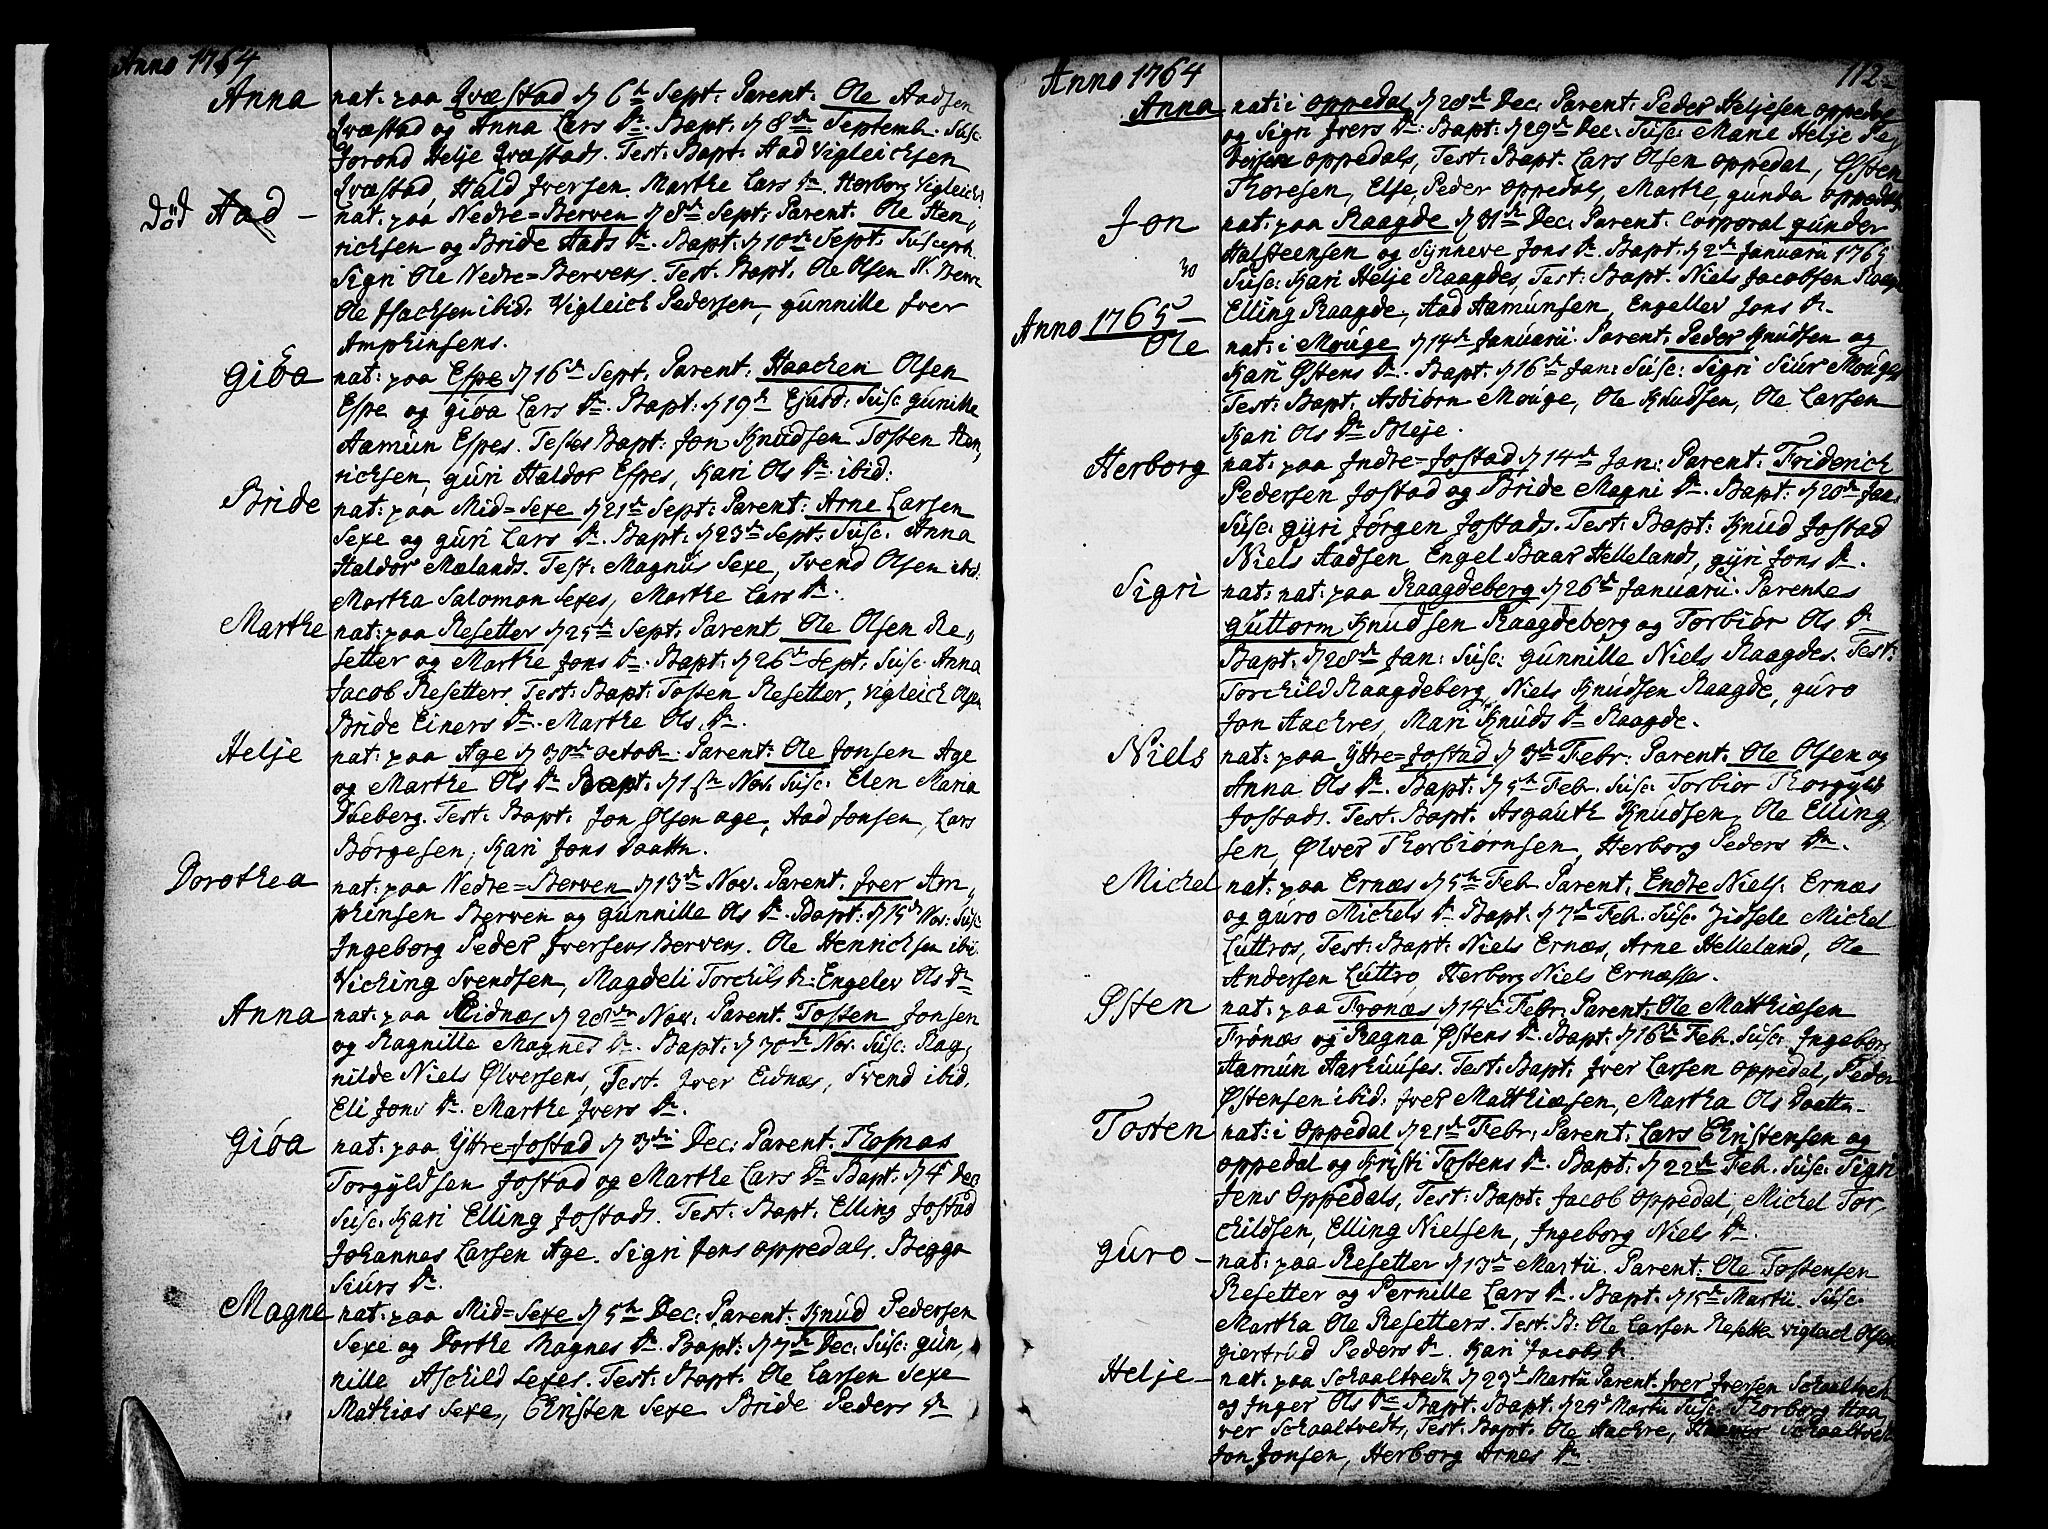 Anno 1764
Anna nat: paa Qvæstad d 6te Sept: Parent: Ole Aadsen
Qvæstad og Anna Lars Dr. Bapt: d 8de Septemb: Susc:
Jorond Helje Qvæstads. Test: Bapt: Aad Vigleichsen
Qvæstad, Hald Jversen. Marthe Lars Dr. Herborg Vigleichs
död Aad - nat: paa Nedre=Berven d 8de Sept: Parent: Ole Hen,
richsen og Bride Aads Dr. Bapt: d 10de Sept: Suscept.
Sigri Ole Nedre=Bervens. Test. Bapt. Ole Olsen N. Berve
Ole Jsachsen ibid: Vigleich Pedersen, gunnille Jver
Amphinsens.
giöa nat: paa Espe d 16de Sept. Parent: Haachen Olsen
Espe og giöa Lars Dr. Bapt: d 19de Ejusd: Susc gunille
Aamun Espes. Testes Bapt: Jon Knudsen Tosten Hen,
richsen, guri Haldor Espes, Kari Ols Dr: ibid:
Bride nat: paa Mid=Sexe d 21de Sept: Parent: Arne Larsen
Sexe og guri Lars Dr. Bapt: d 23de Sept: Susc: Anna
Haldor Mælands. Test: Magnus Sexe, Svend Olsen ibid.
Martha Salomon Sexes, Marthe Lars Dr.
Marthe nat: paa Resetter d 25de Sept: Parent Ole Olsen Re,
setter og Marthe Jons Dr. Bapt: d 26de Sept: Susc: Anna
Jacob Resetters. Test: Bapt: Tosten Resetter, Vigleich Olsen
Bride Einers Dr. Marthe Ols. Dr.
Helje nat: paa Age d 30de Octob: Parent: Ole Jonsen Age
og Marthe Ols Dr Bapt: d 1ste Nov. Susc: Elen Maria
Test: Bapt: Jon Olsen age, Aad Jonsen, Lars
Börgesen, Kari Jons Daattr.
Dorothea nat: paa Nedre=Berven d 13de Nov. Parent. Jver Am,
phinsen Berven og gunnille Ols Dr. Bapt: d 15de Nov: Susc:
Jngeborg Peder Jversens Bervens. Ole Henrichsen ibid.
Viching Svendsen, Magdeli Torchils Dr: Engelev Ols Dr
Anna nat: paa Eidnæs d 28de Nov: Parent. Tosten Jonsen
og Ragnille Magnes Dr. Bapt: d 30de Nov. Susc: Rag,
nilde Niels Ølversens, Test. Jver Eidnæs, Svend ibid.
Eli Jons Dr. Marthe Jvers Dr.
giöa nat: paa Yttre-Jostad d 3die Dec: Parent: Thomas
Torgyldsen Jostad og Marthe Lars Dr Bapt: d 4de Dec
Susc: Kari Elling Jostads. Test: Bapt: Elling Jostad
Johannes Larsen Age. Sigri Jens oppedals. Begga
Siurs Dr.
Magne nat: paa Mid=Sexe d 5te Dec: Parent: Knud Pedersen
Sexe og Dorthe Magnes Dr. Bapt: d 7de Dec: Susc: gun,
nille Aschild Sexes. Test: Bapt. Ole Larsen Sexe
Mathias Sexe, Christen Sexe Bride Peders Dr
Anno 1764 112
Anna nat: i oppedal d 28de Dec: Parent: Peder Heljesen oppedal
og Sigri Jvers Dr: Bapt: d 29de Dec: Susc: Marie Helje Pe,
dersens oppedals, Test: Bapt. Lars Olsen oppedal, Østen
Thoresen, Else, Peder oppedals, Marthe, gunda oppedals
Jon nat: paa Raagde d 31de Dec: Parent: Corporal gunder
Halsteensen og Synneve Jons Dr. Bapt: d 2de Januarii 1765
30 Susc: Kari Helje Raagdes, Test: Bapt. Niels Jacobsen Raagde
Elling Raagde, Aad Aamunsen, Engellev Jons Dr.
Anno 1765 -
Ole nat: i Mouge d 14de Januarii: Parent: Peder Knudsen og
Kari Østens Dr. Bapt: d 16de Jan: Susc: Sigri Siur Mouges
Test: Bapt: Asbiörn Mouge, Ole Knudsen, Ole Larsen
Kari Ols Dr Bleje.
Herborg nat: paa Jndre=Jostad d 14de Jan: Parent: Friderich
Pedersen Jostad og Bride Magni Dr. Bapt: d 20de Jan:
Susc: gyri Jörgen Jostads. Test: Bapt: Knud Jostad
Niels Aadsen, Engel Baar Hellelands, gyri Jons Dr.
Sigri nat: nat: paa Raagdeberg d 26de Januarii: Parentes
guttorm Knudsen Raagdeberg og Torbiör Ols Dr
Bapt: d 28de Jan: Susc: gunnille Niels Raagdes. Test:
Torchild Raagdeberg, Niels Knudsen Raagde, guro
Jon Aachres, Mari Knuds Dr Raagde.
Niels nat: paa Yttre=Jostad d 3de Febr: Parent: Ole Olsen og
Anna Ols Dr. Bapt: d 5te Feb. Susc: Torbiör Thorgyld
Jostads. Test: Bapt: Asgauth Knudsen, Ole Elling
sen, Ølver Thorbiörnsen, Herborg Peders Dr.
Michel nat: paa Ernæs d 5te Feb Parent: Endre Niels: Ernæs
og guro Michels Dr. Bapt: d 7de Feb. Susc: Zidsele Michel
Luttros, Test: Bapt: Niels Ernæs, Arne Helleland, Ole
Andersen Luttro, Herborg Niels Ernæsses.
Østen nat: paa Frönæs d 14de Febr: Parent: Ole Matthiæsen
Frönæs og Ragna Østens Dr. Bapt: d 16de Feb. Susc: Jngebor
Aamun Aarhuuses. Test: Bapt: Jver Larsen oppedal, Peder
Østensen ibid: Jver Matthiæsen, Martha Ols Daattr.
Tosten nat: i oppedal d 21de Febr: Parent: Lars Christensen og
oppedal og Kristi Tostens Dr. Bapt: d 22de Feb. Susc: Sigri
Jens Oppedals, Test: Bapt: Jacob oppedal, Michel Tor,
childsen, Elling Nielsen, Jngeborg Niels Dr.
guro - nat: paa Resetter d 13de Martii. Parent: Ole Tostensen
Resetter og Pernille Lars Dr. Bapt: d 15de Martii. Susc:
Martha Ole Resetters. Test: B: Ole Larsen Resetter vigleich Olsen
giertrud Peders Dr. Kari Jacobs Dr.
Helje - nat: paa Schaaltvedt d 23de Martii Parent. Jver Jversen Schaaltvedt
og Jnger Ols Dr Bapt. Bapt: d 24de Martii Susc: Thorborg Haa,
ver Schaaltvedts, Test: Bapt: Ole Aachre, Haaver Schaaltvedt
Jon Jonsen, Herborg Arnes Dr.